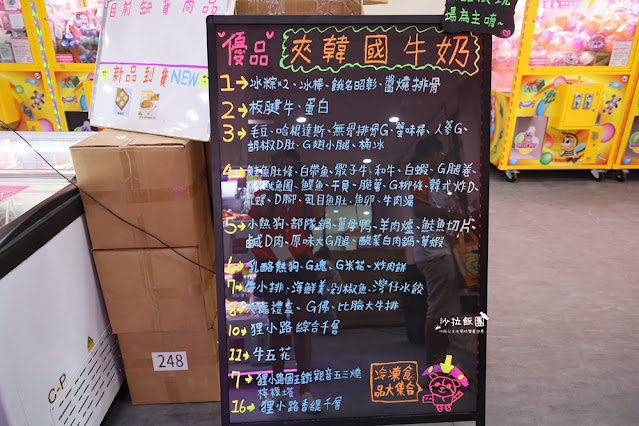 目前缺貨商品
新品到貨NEW
場為主唷~
優品 夾韓國牛奶
1→冰粽×2、冰棒、餓名昭彰、醬燒排骨
2→板腱牛、蛋白
3→毛豆、哈根達斯、無骨排骨G、蟹味棒、人蔘G、
胡椒D肚、G翅小腿、桶冰
4→鮭魚肚條、白帶魚、骰子牛、和牛、白蝦、G腿卷
鯛魚、干貝、脆薯、G柳條、韓式炸D、
D腳、虱目魚肚、魚卵、牛肉湯
5→小熱狗、部隊鍋、薑母鴨、羊肉爐、鮭魚切片、
鹹D肉、原味大G腿、酸菜白肉鍋、草蝦
6→乳酪熱狗、G塊、G米花、炸肉餅
7→牛小排、海鮮羹、剁椒魚、灣仔水餃
8→禮盒、G佛、比臉大牛排
10→狸小路綜合千層
11→牛五花
7→狸小路國王鐵觀音五三燒
檸檬塔
16→狸小路香緹千層
冷凍食
品大集合
沙拉飯團
248
C-P